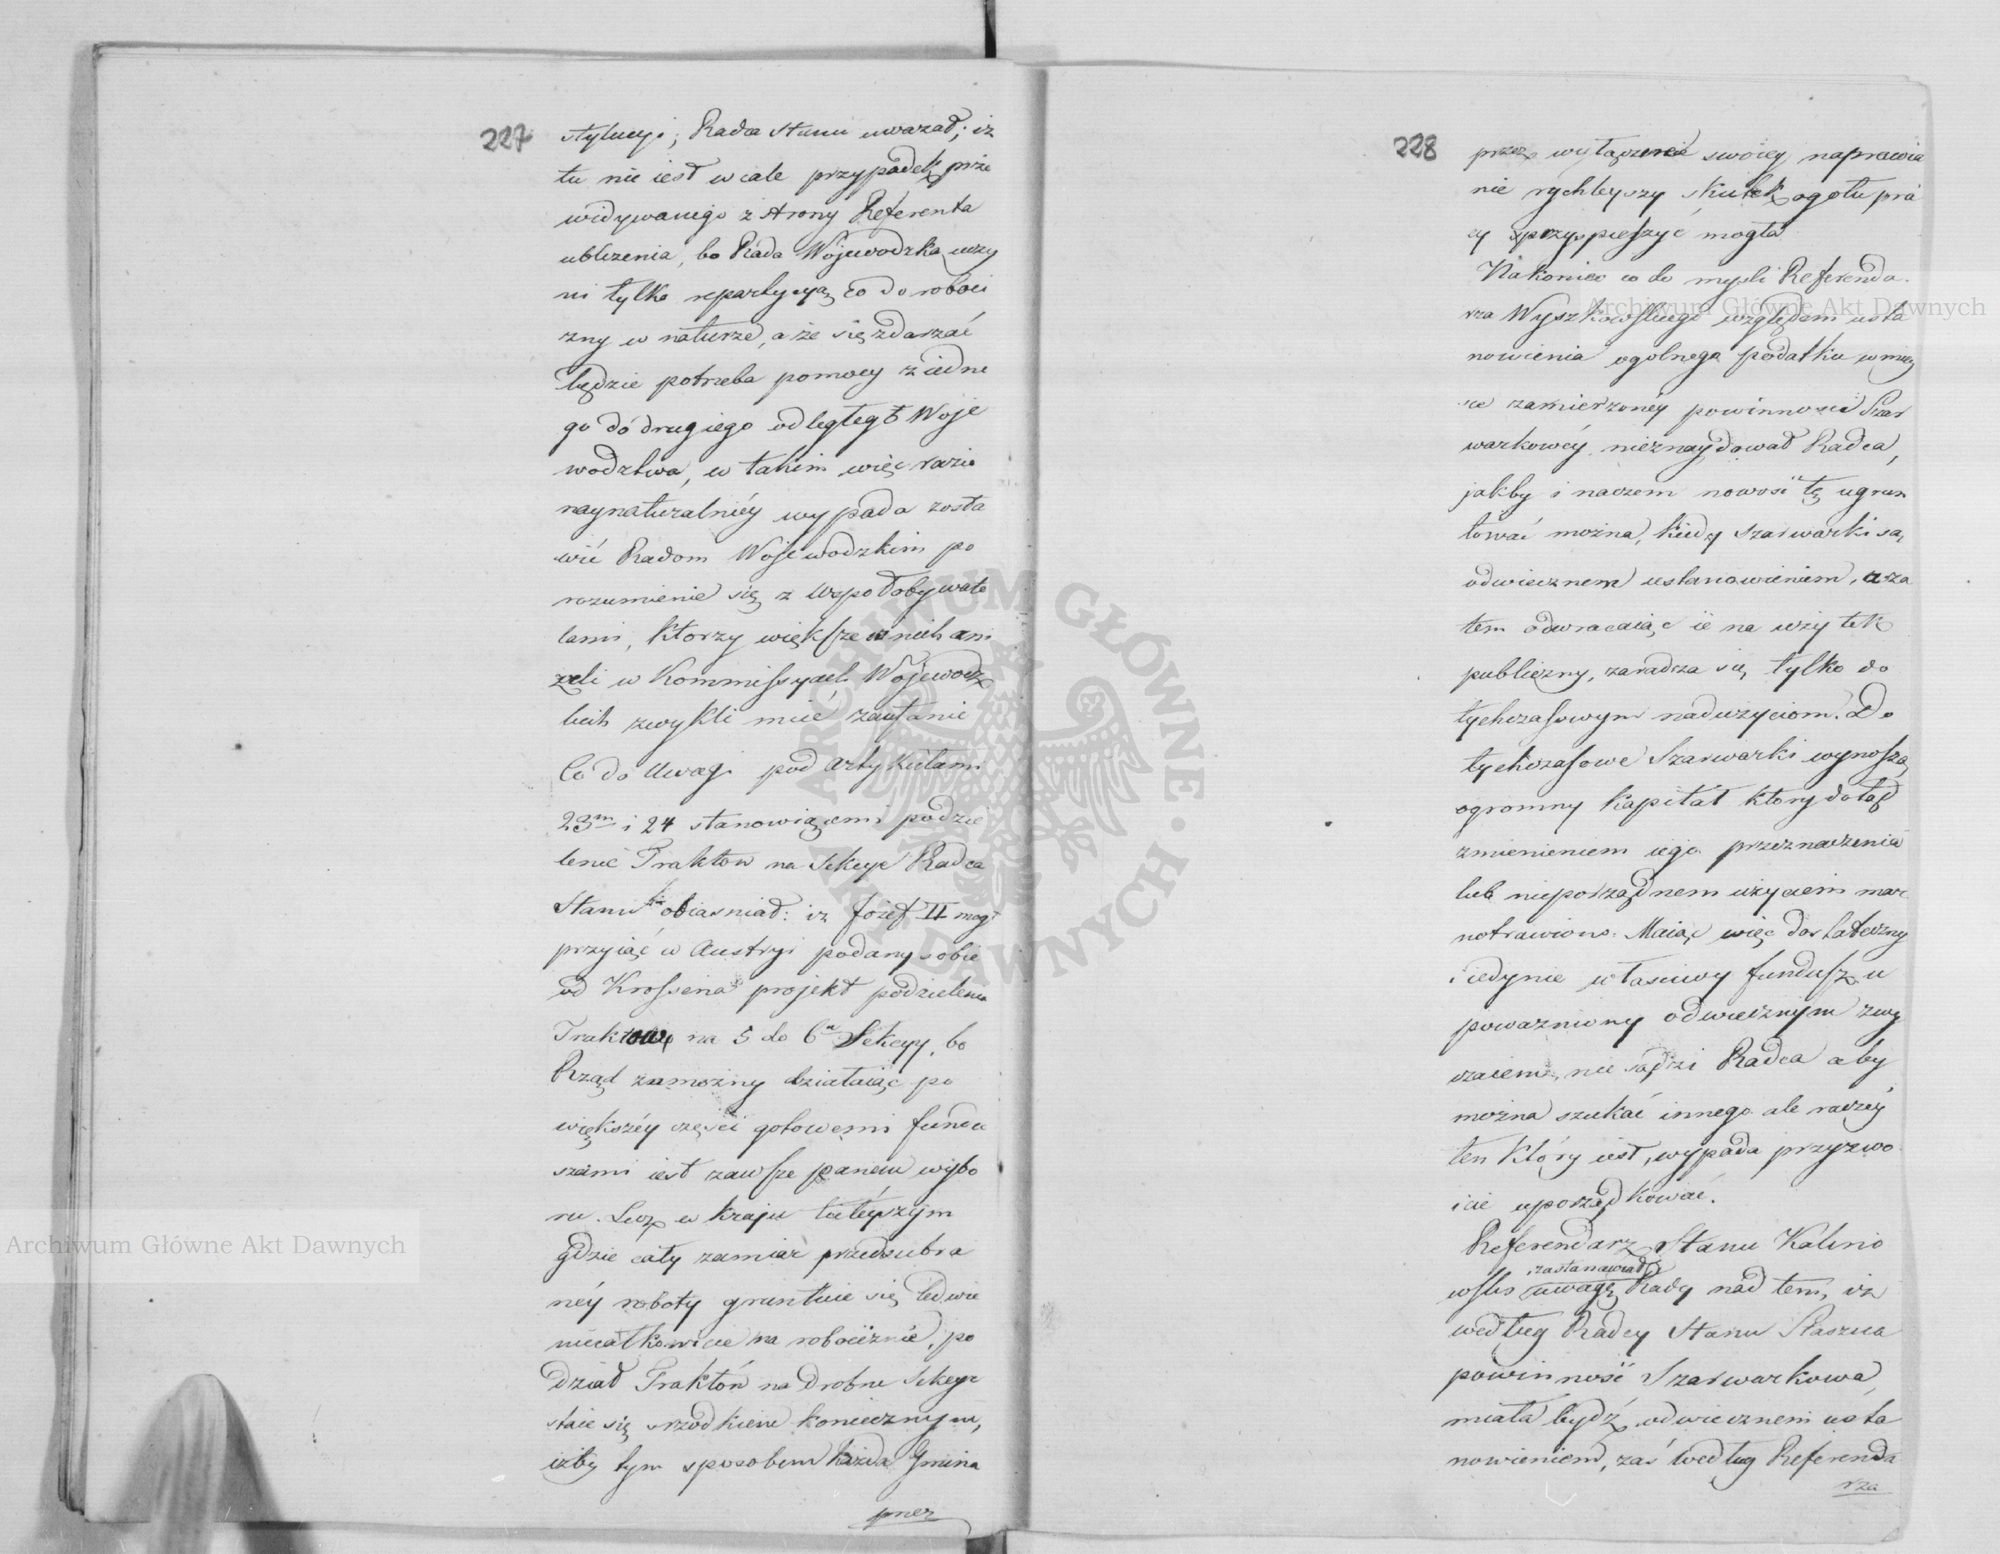 227
stytucyi; Radca Stanu uwazał; iz
tu nie iest wcale przypadek prze
widywanego z strony Referenta
ubliżenia, bo Rada Woiewodzka uczy
ni tylko repartycyą co do roboci
zny w naturze, a że się zdarzać
będzie potrzeba pomocy z iedne
go do drugiego odległego Woje
wodztwa, w takim więc razie
naynaturalniéy wypada zosta
wić Radom Wojewodzkim po
rozumienie się z Wspołobywate
lami, ktorzy większe w nich ani
żeli w Kommissyach Wojewodz
kich zwykli mieć zaufanie
Co do Uwagi pod Artykułami
23m i 24 stanowiącemi podzie
lenie Traktow na Sekcye Radca
Stanu obiasniał: iz Jozef II mogł
przyiąć w Austryi podany sobie
od Krossena projekt podzielenia
Traktow na 5 do 6u Sekcyy, bo
Rząd zamożny działaiąc po
większéy części gotowemi fundu
szami iest zawsze panem wybo
ru. Lecz w kraju tuteyszym
gdzie cały zamiar przedsiębra
néy roboty gruntuie się ledwie
niecałkowicie na robociznie, po
dział Traktów na drobne Sekcye
staie się srzodkiem koniecznym,
iżby tym sposobem każda Gmina
przez
228
przez wyłączenie swóiey naprawia
nie rychleyszy skutek ogołu pra
cy przyspieszyć mogła
Nakoniec co do mysli Referenda
rza Wyszkowskiego względem usta
nowienia ogolnego podatku w miey
sce zamierzonéy powinnosci Szar
warkowéy, nieznaydował Radca,
jakby i naczem nowość tę ugrun
tować można, kiedy Szarwarki są
odwiecznem ustanowieniem, a za
tem odwracaiąc ie na użytek
publiczny, zaradza się tylko do
tychczasowym nadużyciom. Do
tychczasowe Szarwarki wynoszą
ogromny kapitał ktory dotąd
zmienieniem iego przeznaczenia
lub nieporządnem użyciem mar
notrawiono. Maiąc więc dostateczny
i iedynie właściwy fundusz u
poważniony odwiecznym zwy
czaiem, nie sądzi Radca aby
można szukać innego ale raczéy
ten który iest, wypada przyzwo
icie uporządkować.
Referendarz Stanu Kalino
zastanawiał
wski uwagę Rady nad tem, iz
według Radcy Stanu Staszica
powinność Szarwarkowa
miała bydź odwiecznem usta
nowieniem, zaś według Referenda
rza
Archiwum Główne Akt Dawnych
Archiwum Główne Akt Dawnych
ARCHIWUM GŁÓWNE · AKT DAWNYCH ·